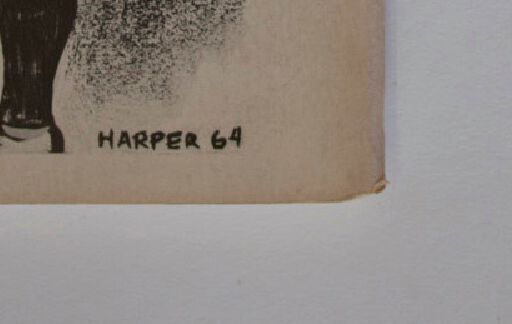 HARPER 64